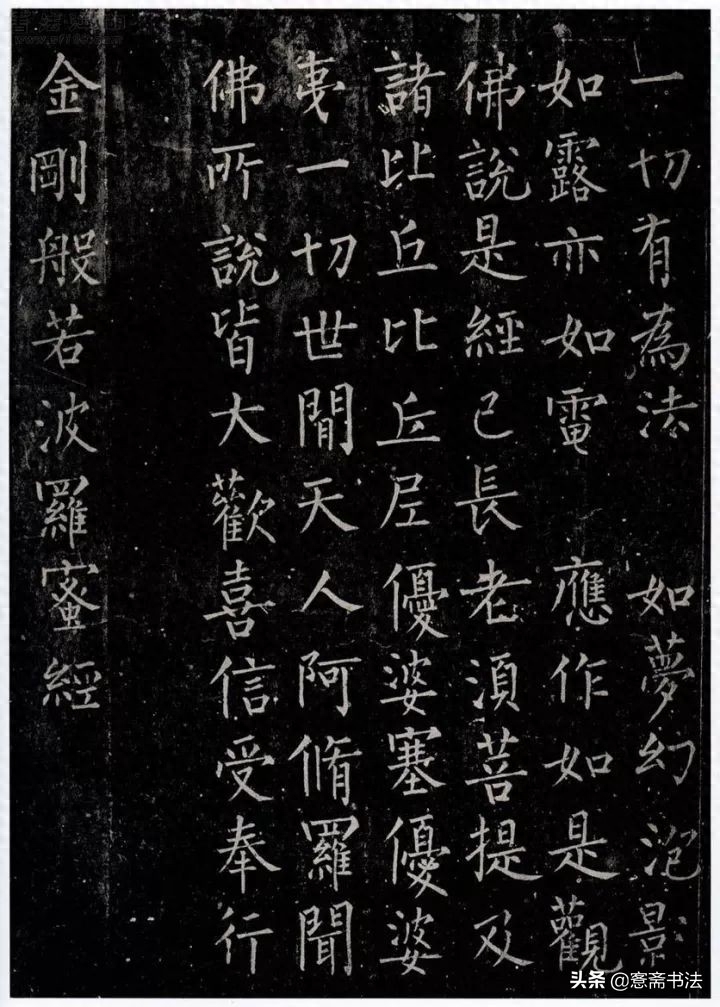 一切有為法 如夢幻泡影
如露亦如電 應作如是觀
佛說是經已長老須菩提及
諸比丘比丘尼優婆塞優婆
夷一切世間天人阿脩羅聞
佛所說皆大歡喜信受奉行
金剛般若波羅蜜經
头条 @窓斋书法